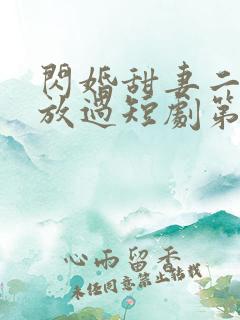 閃婚甜妻二
放過短劇第
心雨留香
未经同意禁止转载